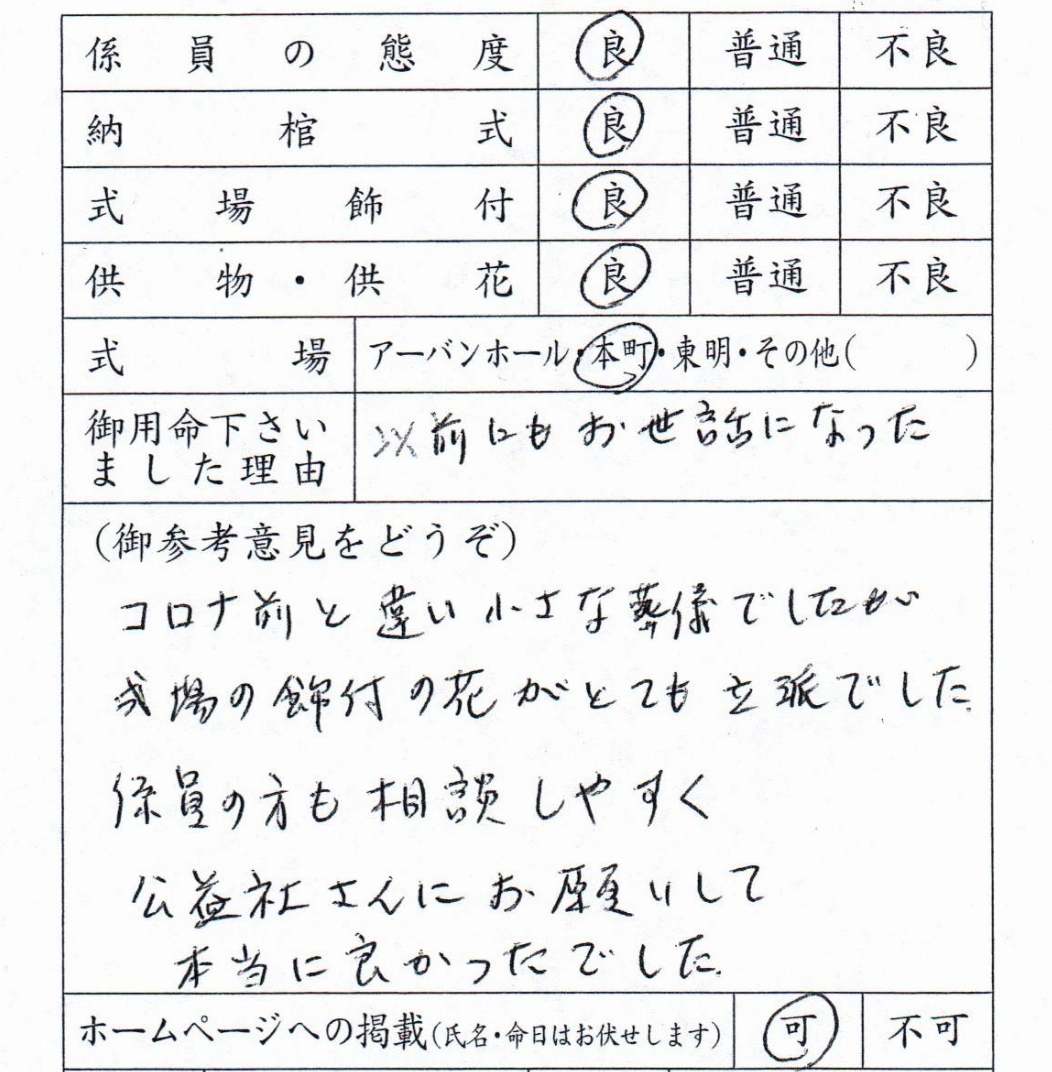 係員の態度 良 普通 不良
納棺式 良 普通 不良
式場飾付 良 普通 不良
供物・供花 良 普通 不良
式場 アーバンホール・本町・東明・その他( )
御用命下さい
ました理由
以前にもお世話になった
(御参考意見をどうぞ)
コロナ前と違い小さな葬儀でしたが
式場の飾付の花がとても立派でした
係員の方も相談しやすく
公益社さんにお願いして
本当に良かったでした。
ホームページへの掲載(氏名・命日はお伏せします) 可 不可